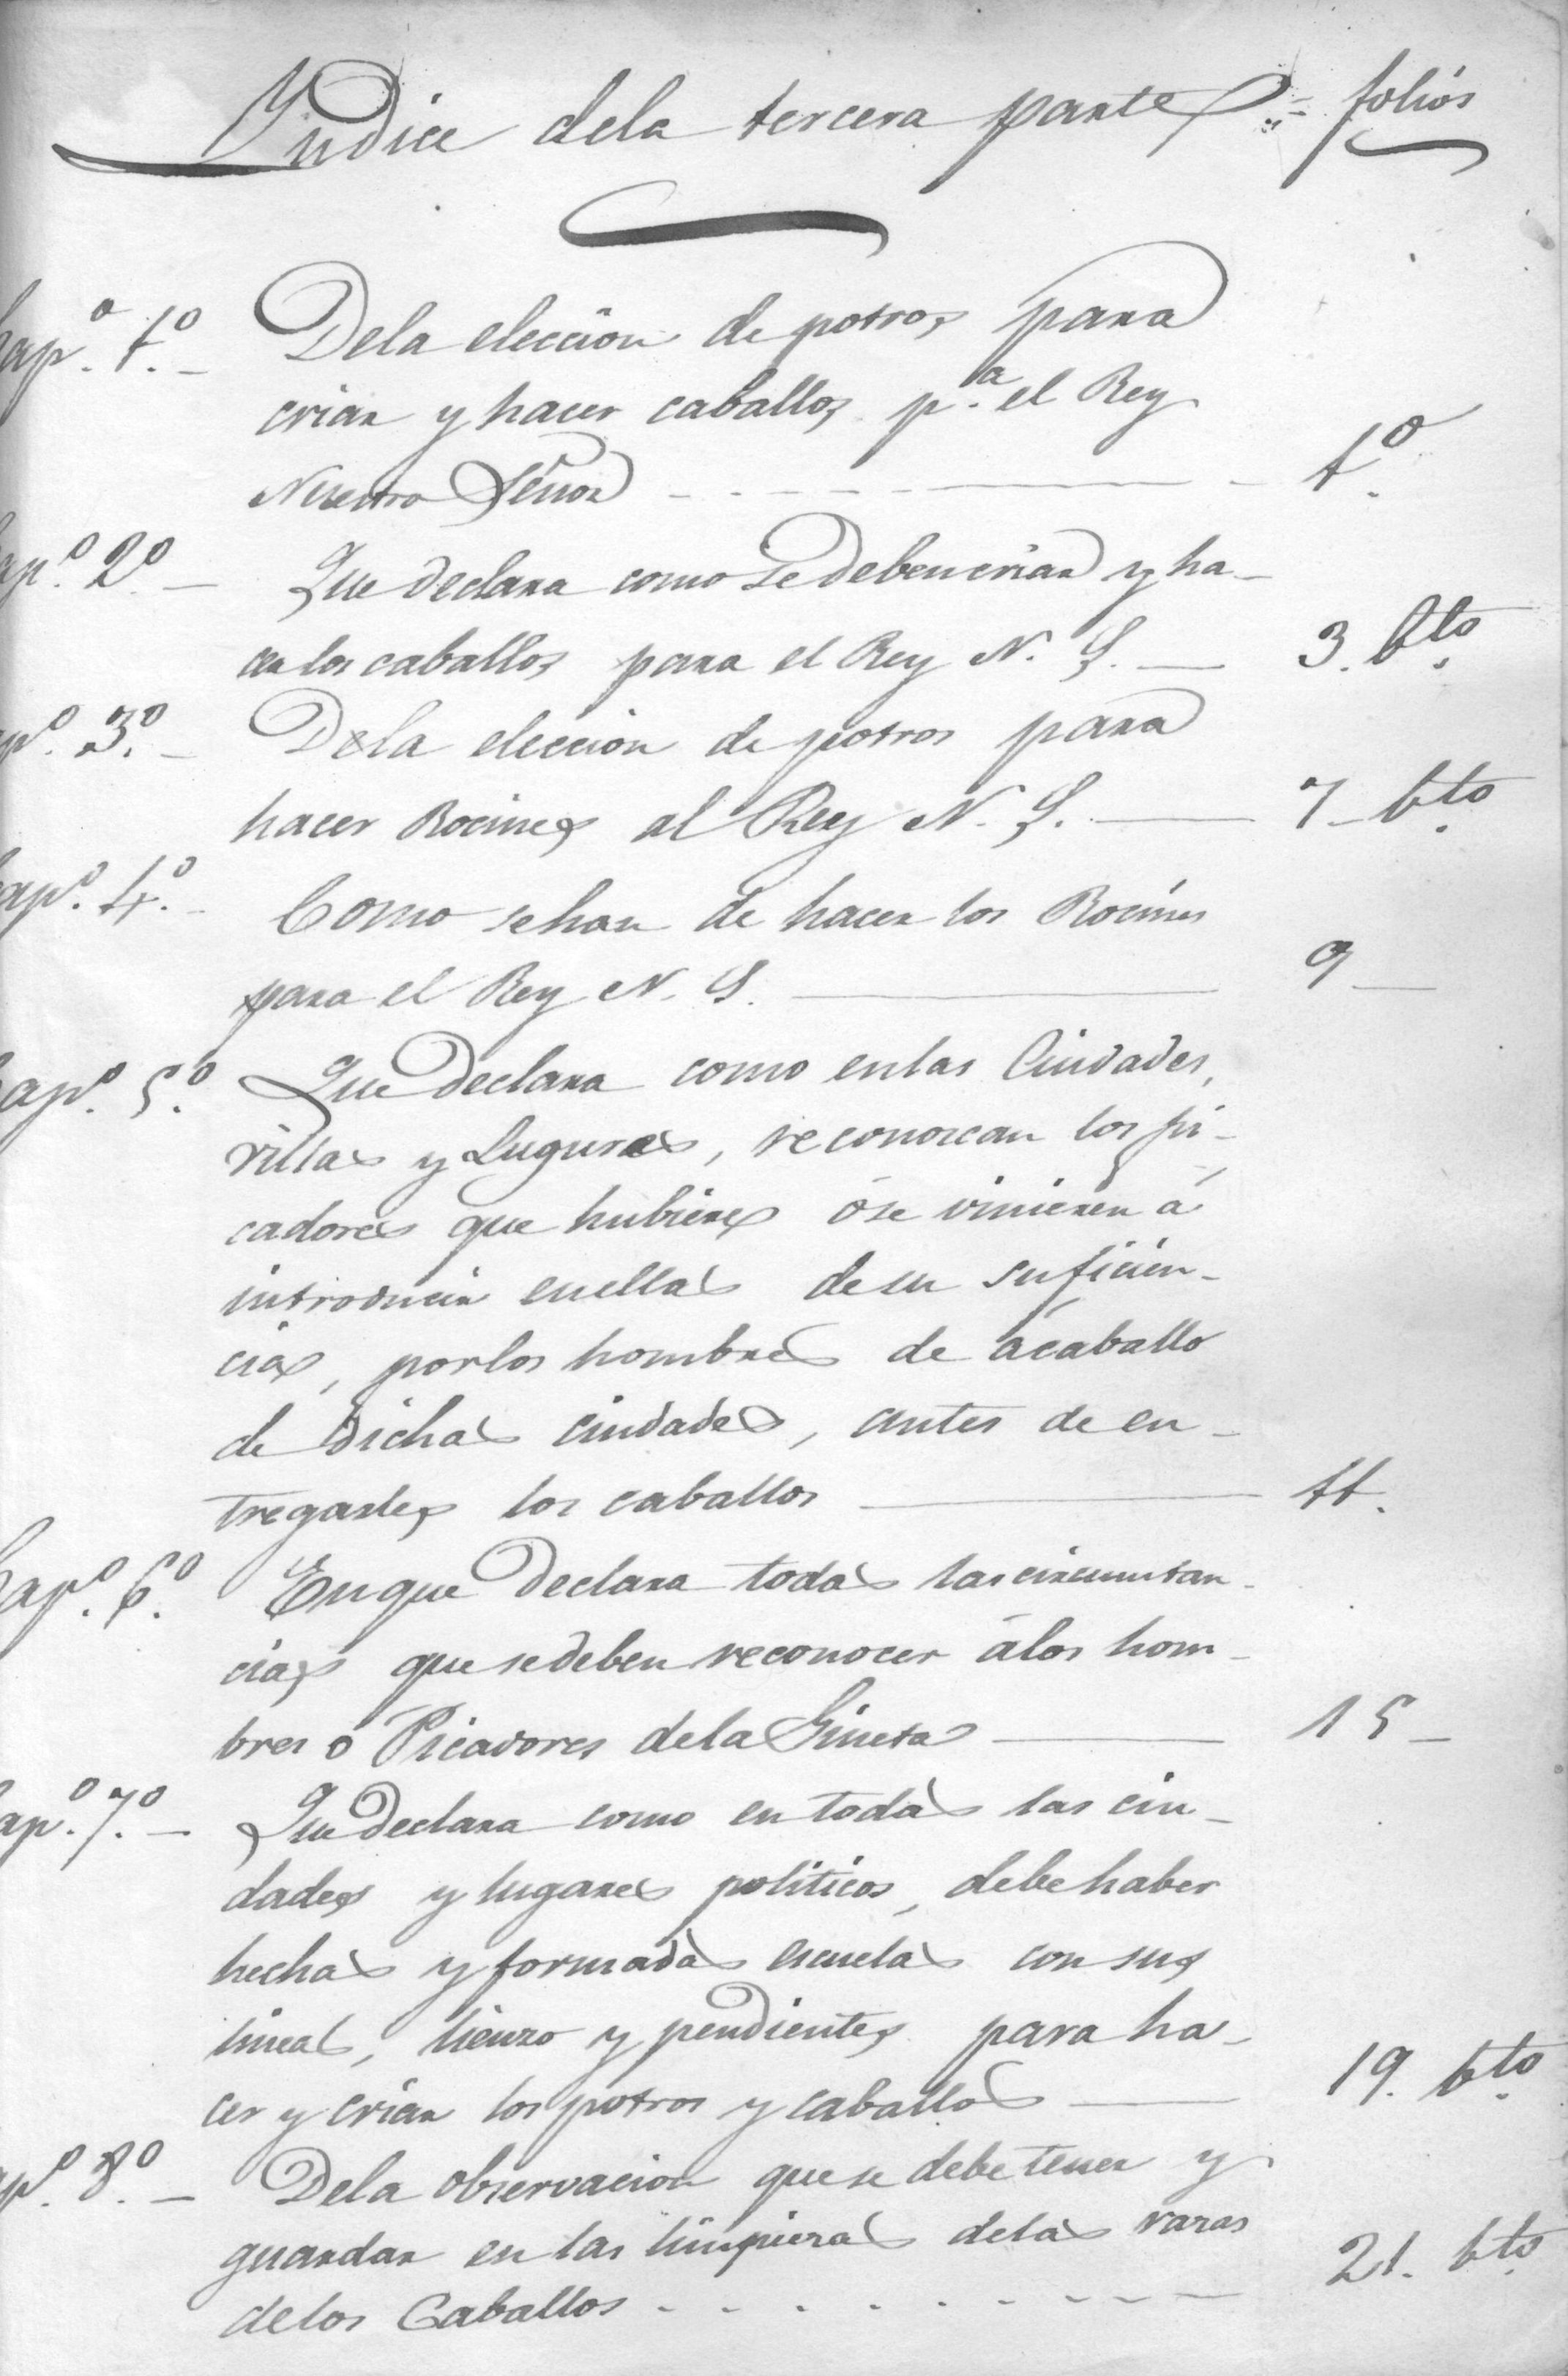 Yndice dela tercera parte = folios
Cap.º 1.º - Dela eleccion de potros para
criar y hacer caballos p.ª el Rey
Nuestro Señor 1.º
Cap.º 2.º - Que declara como se deben criar y ha-
cer los caballos para el Rey N. S. 3. bto
Cap.º 3.º - Dela eleccion de potros para
hacer Rocines al Rey N. S. 7 bto
Cap.º 4.º - Como sehan de hacer los Rocines
para el Rey N. S. 9
Cap.º 5.º Que declara como enlas Ciudades,
villas y Lugures, reconoscan los pi-
cadores que hubieres óse vinieren á
introducir enellas desu suficien-
cia, porlos hombres de ácaballo
de dichas ciudades, antes de en-
tregarles los caballos 11.
Cap.º 6.º Enque declara todas lascircunstan-
cias que sedeben reconocer álos hom-
bres ó Picadores dela Gineta 15
Cap.º 7.º - Que declara como en todas las ciu-
dades y lugares politicos, debe haber
hechas y formadas escuelas con sus
lineas, lienzo y pendientes para ha-
cer y criar los potros y caballos 19. bto
Cap.º 8.º - Dela observacion quese debe tener y
guardar en las limpiezas delas varas
delos Caballos 21. bto